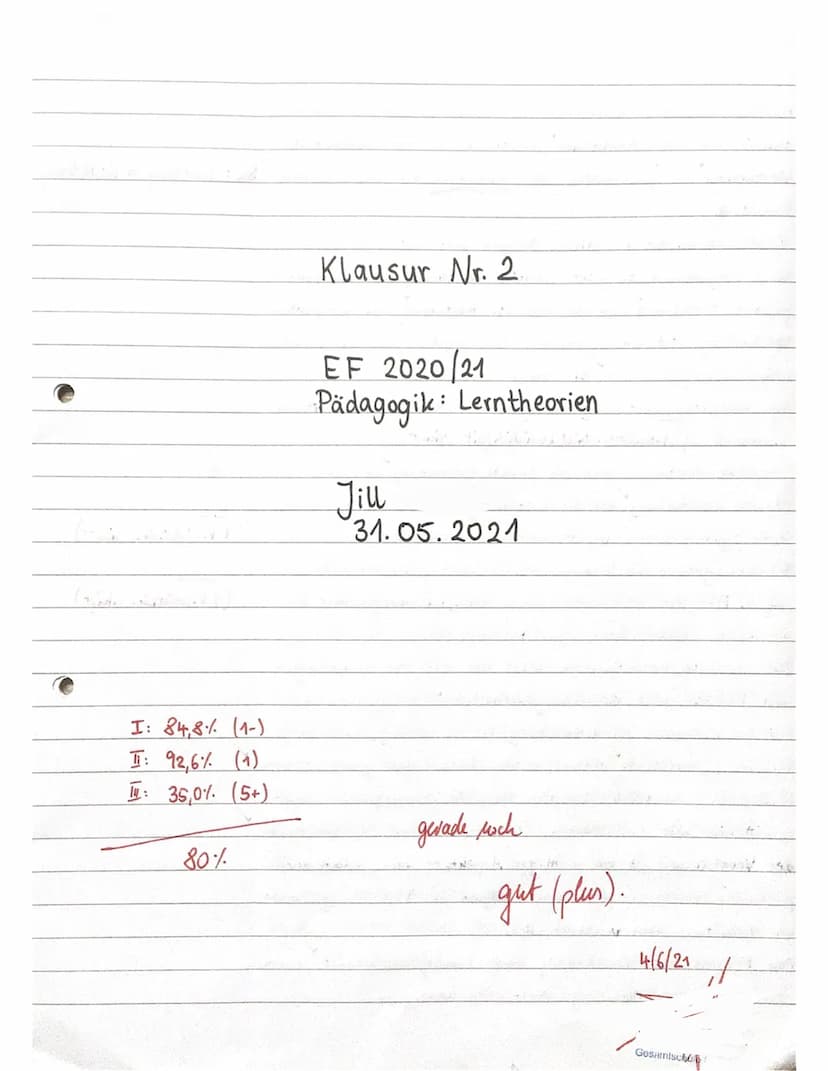 Klausur Nr. 2
EF 2020/21
Pädagogik: Lerntheorien
Jill
31.05.2021
I: 84,8% (1-)
II: 92,6% (1)
III: 35,0% (5+)
80%
gerade noch
gut (plus).
4/6/21